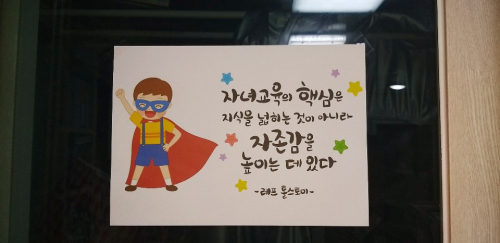 자녀교육의 핵심은
지식을 넓히는 것이 아니라
자존감을
높이는 데 있다
-레프 톨스토이-